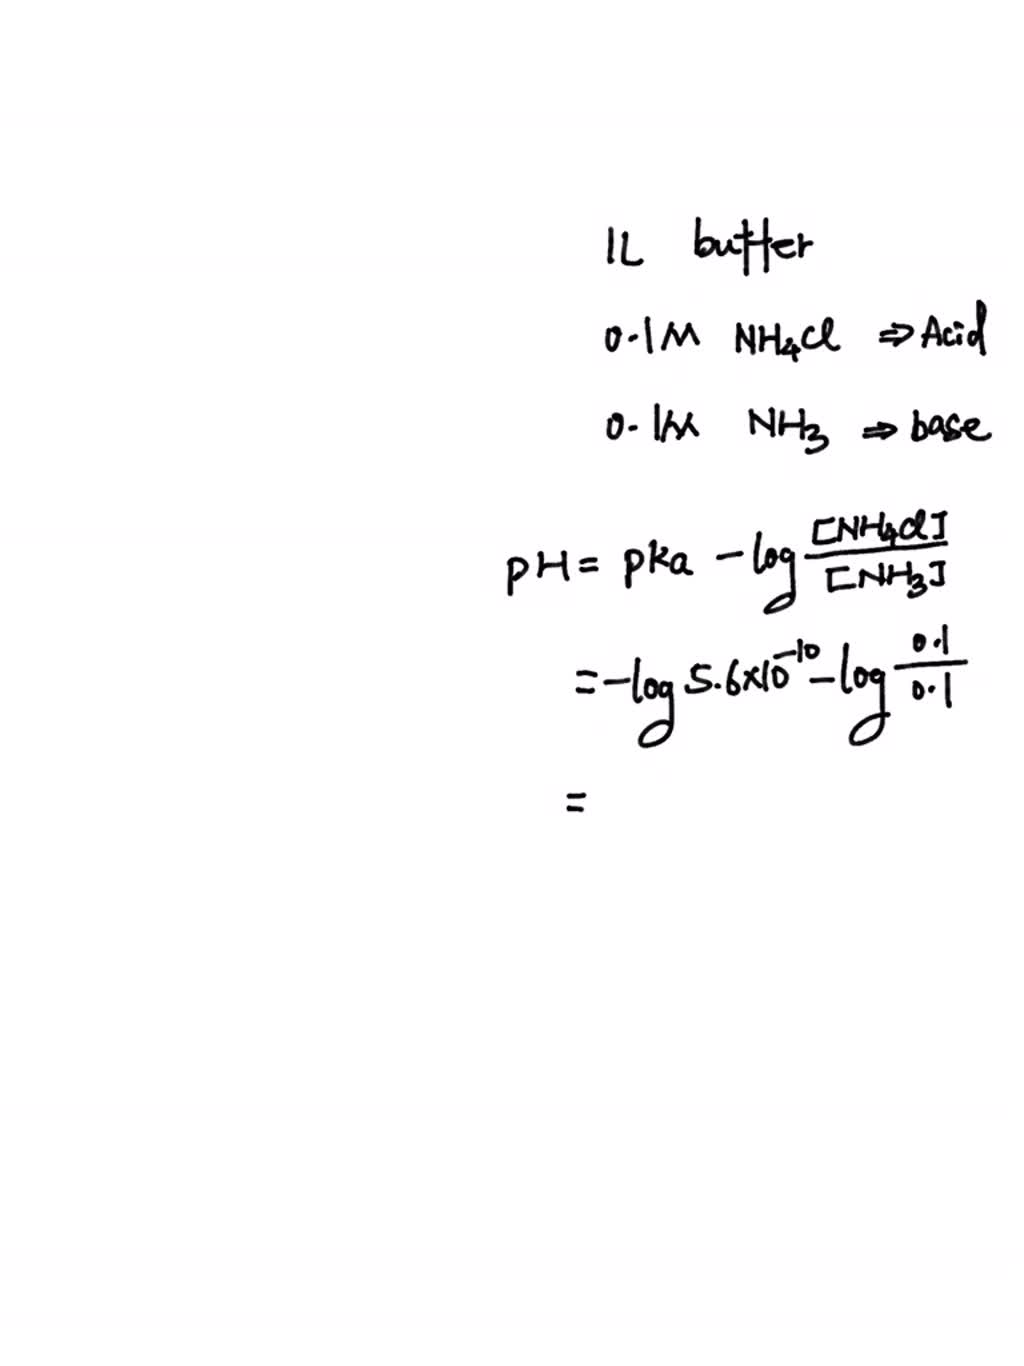 1L buffer
0.1M NH₄Cl ⇒ Acid
0.1M NH₃ ⇒ base
pH = pka - log [NH₄Cl]/[NH₃]
= -log 5.6×10⁻¹⁰ - log 0.1/0.1
=